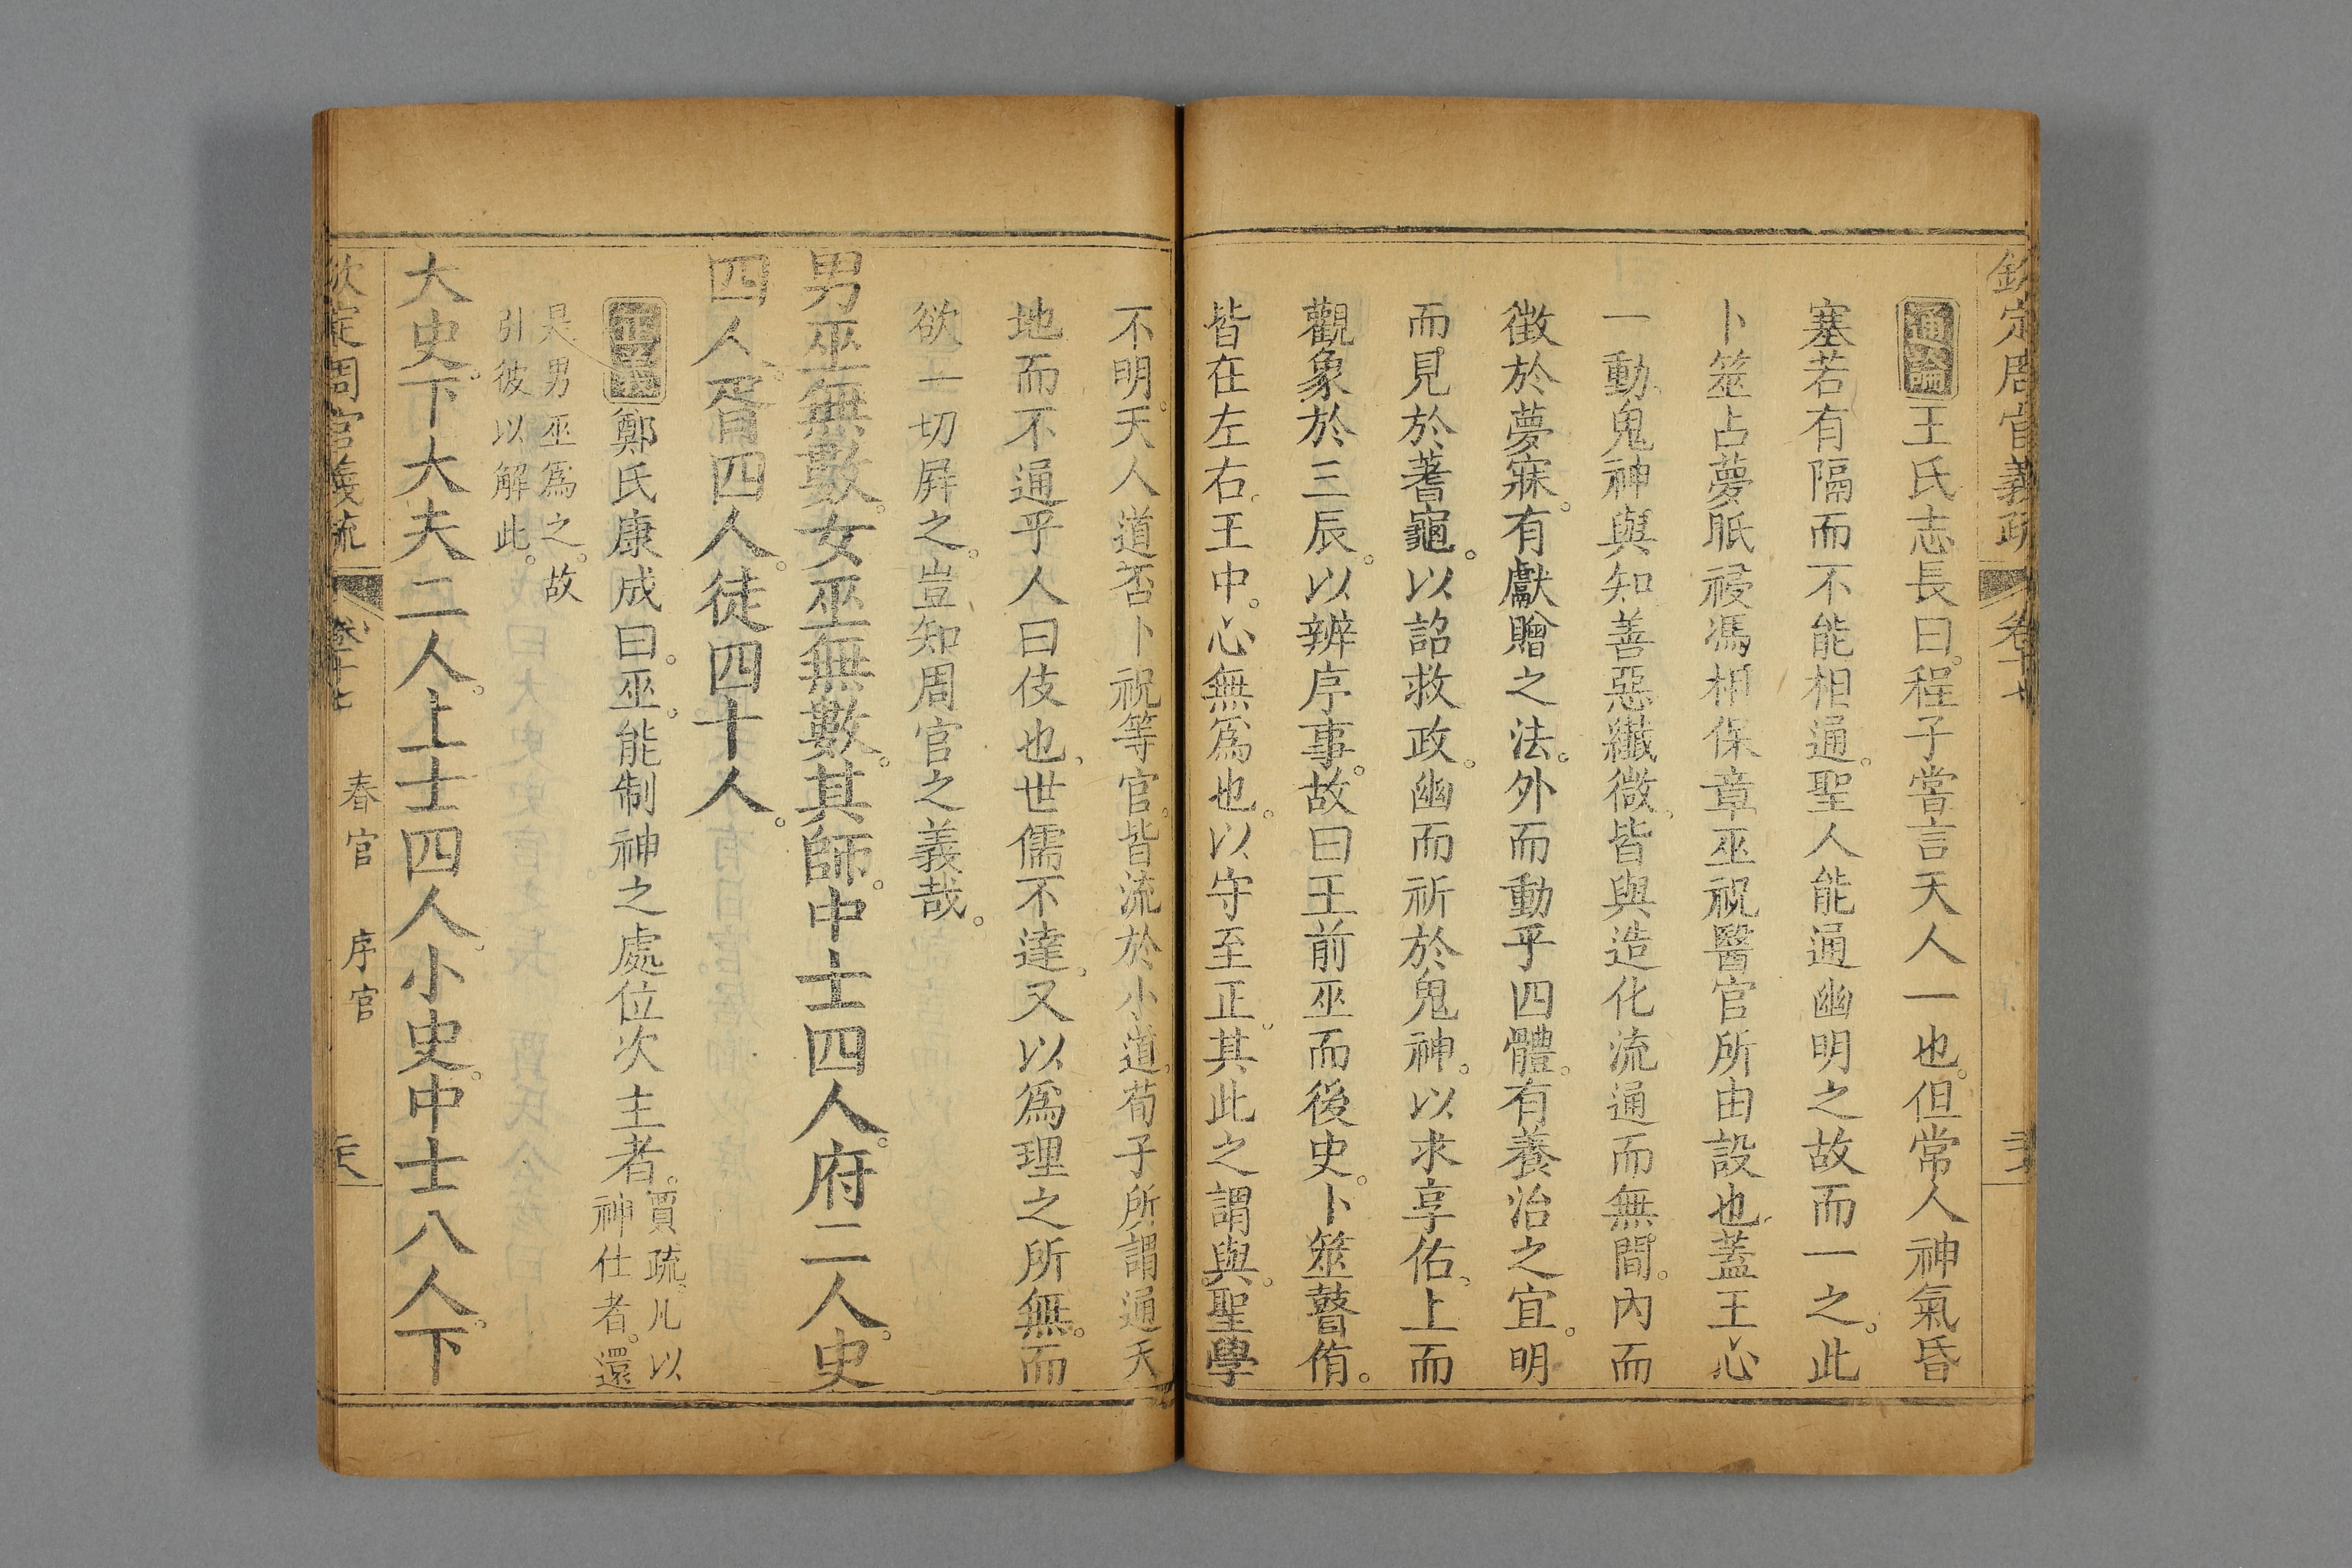 欽定周官義疏 卷十七
通論 王氏志長曰。程子嘗言天人一也。但常人神氣昏
塞若有隔而不能相通。聖人能通幽明之故而一之。此
卜筮占夢眡祲馮相保章巫祝醫官所由設也。蓋王心
一動。鬼神與知善惡纖微。皆與造化流通而無間。內而
徵於夢寐。有獻贈之法。外而動乎四體。有養治之宜。明
而見於蓍龜。以詔救政。幽而祈於鬼神。以求享佑。上而
觀象於三辰。以辨序事。故曰王前巫而後史。卜筮瞽侑。
皆在左右。王中。心無爲也。以守至正。其此之謂與。聖學
不明。天人道否。卜祝等官。皆流於小道。荀子所謂通天
地而不通乎人曰伎也。世儒不達。又以爲理之所無。而
欲一切屛之。豈知周官之義哉。
男巫無數。女巫無數。其師。中士四人。府二人。史
四人。胥四人。徒四十人。
正義 鄭氏康成曰。巫。能制神之處位次主者。賈疏。凡以神仕者。還
是男巫爲之。故引彼以解此。
大史。下大夫二人。上士四人。小史。中士八人。下
欽定周官義疏 卷十七 春官 序官